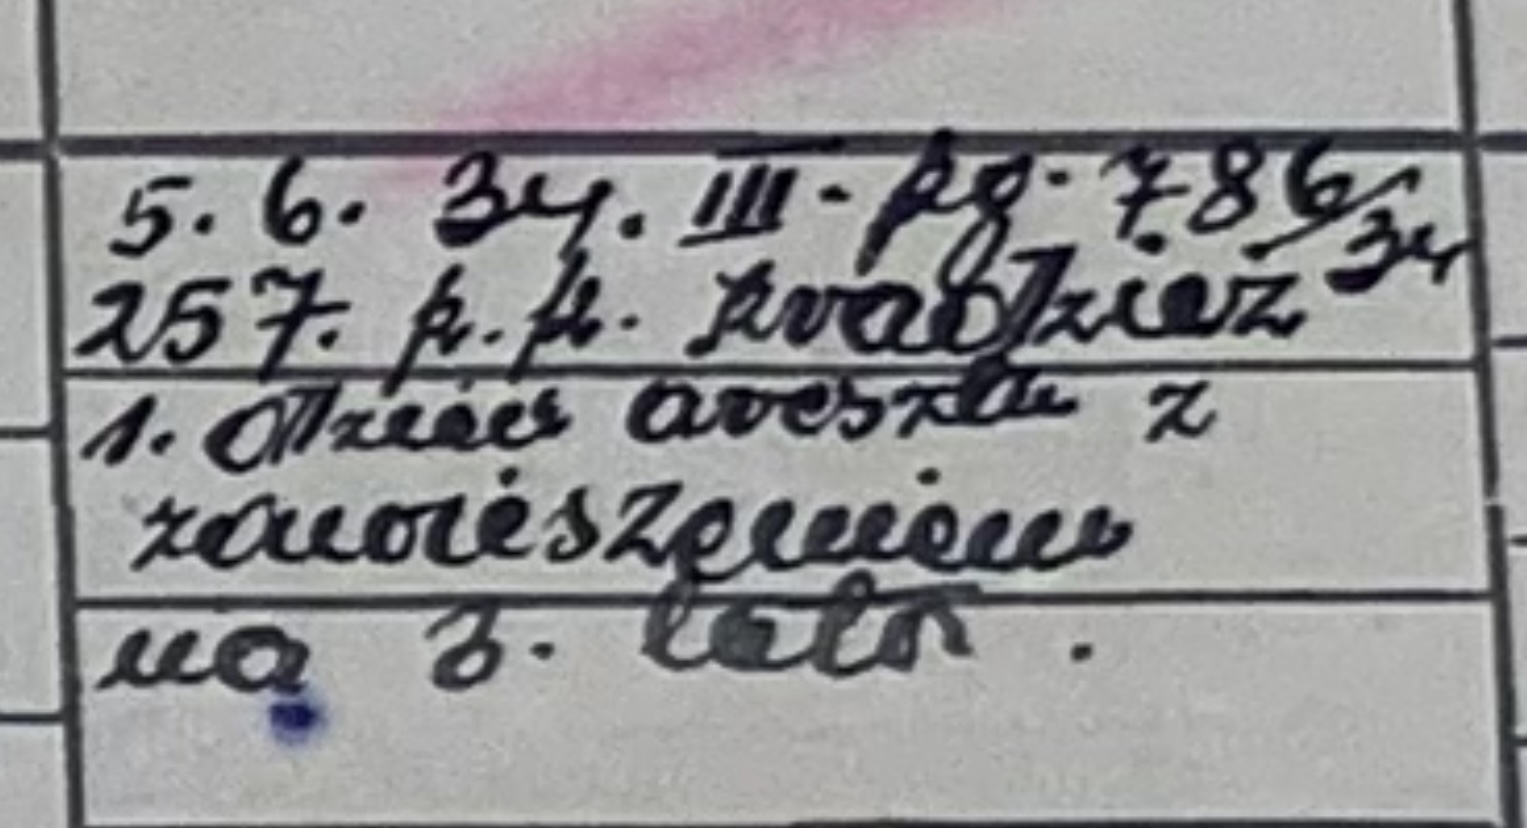 5. 6. 34. III - kg. 786/34
257. k. k. kradzież
1. dzień aresztu z
zawieszeniem
na 3. lata.